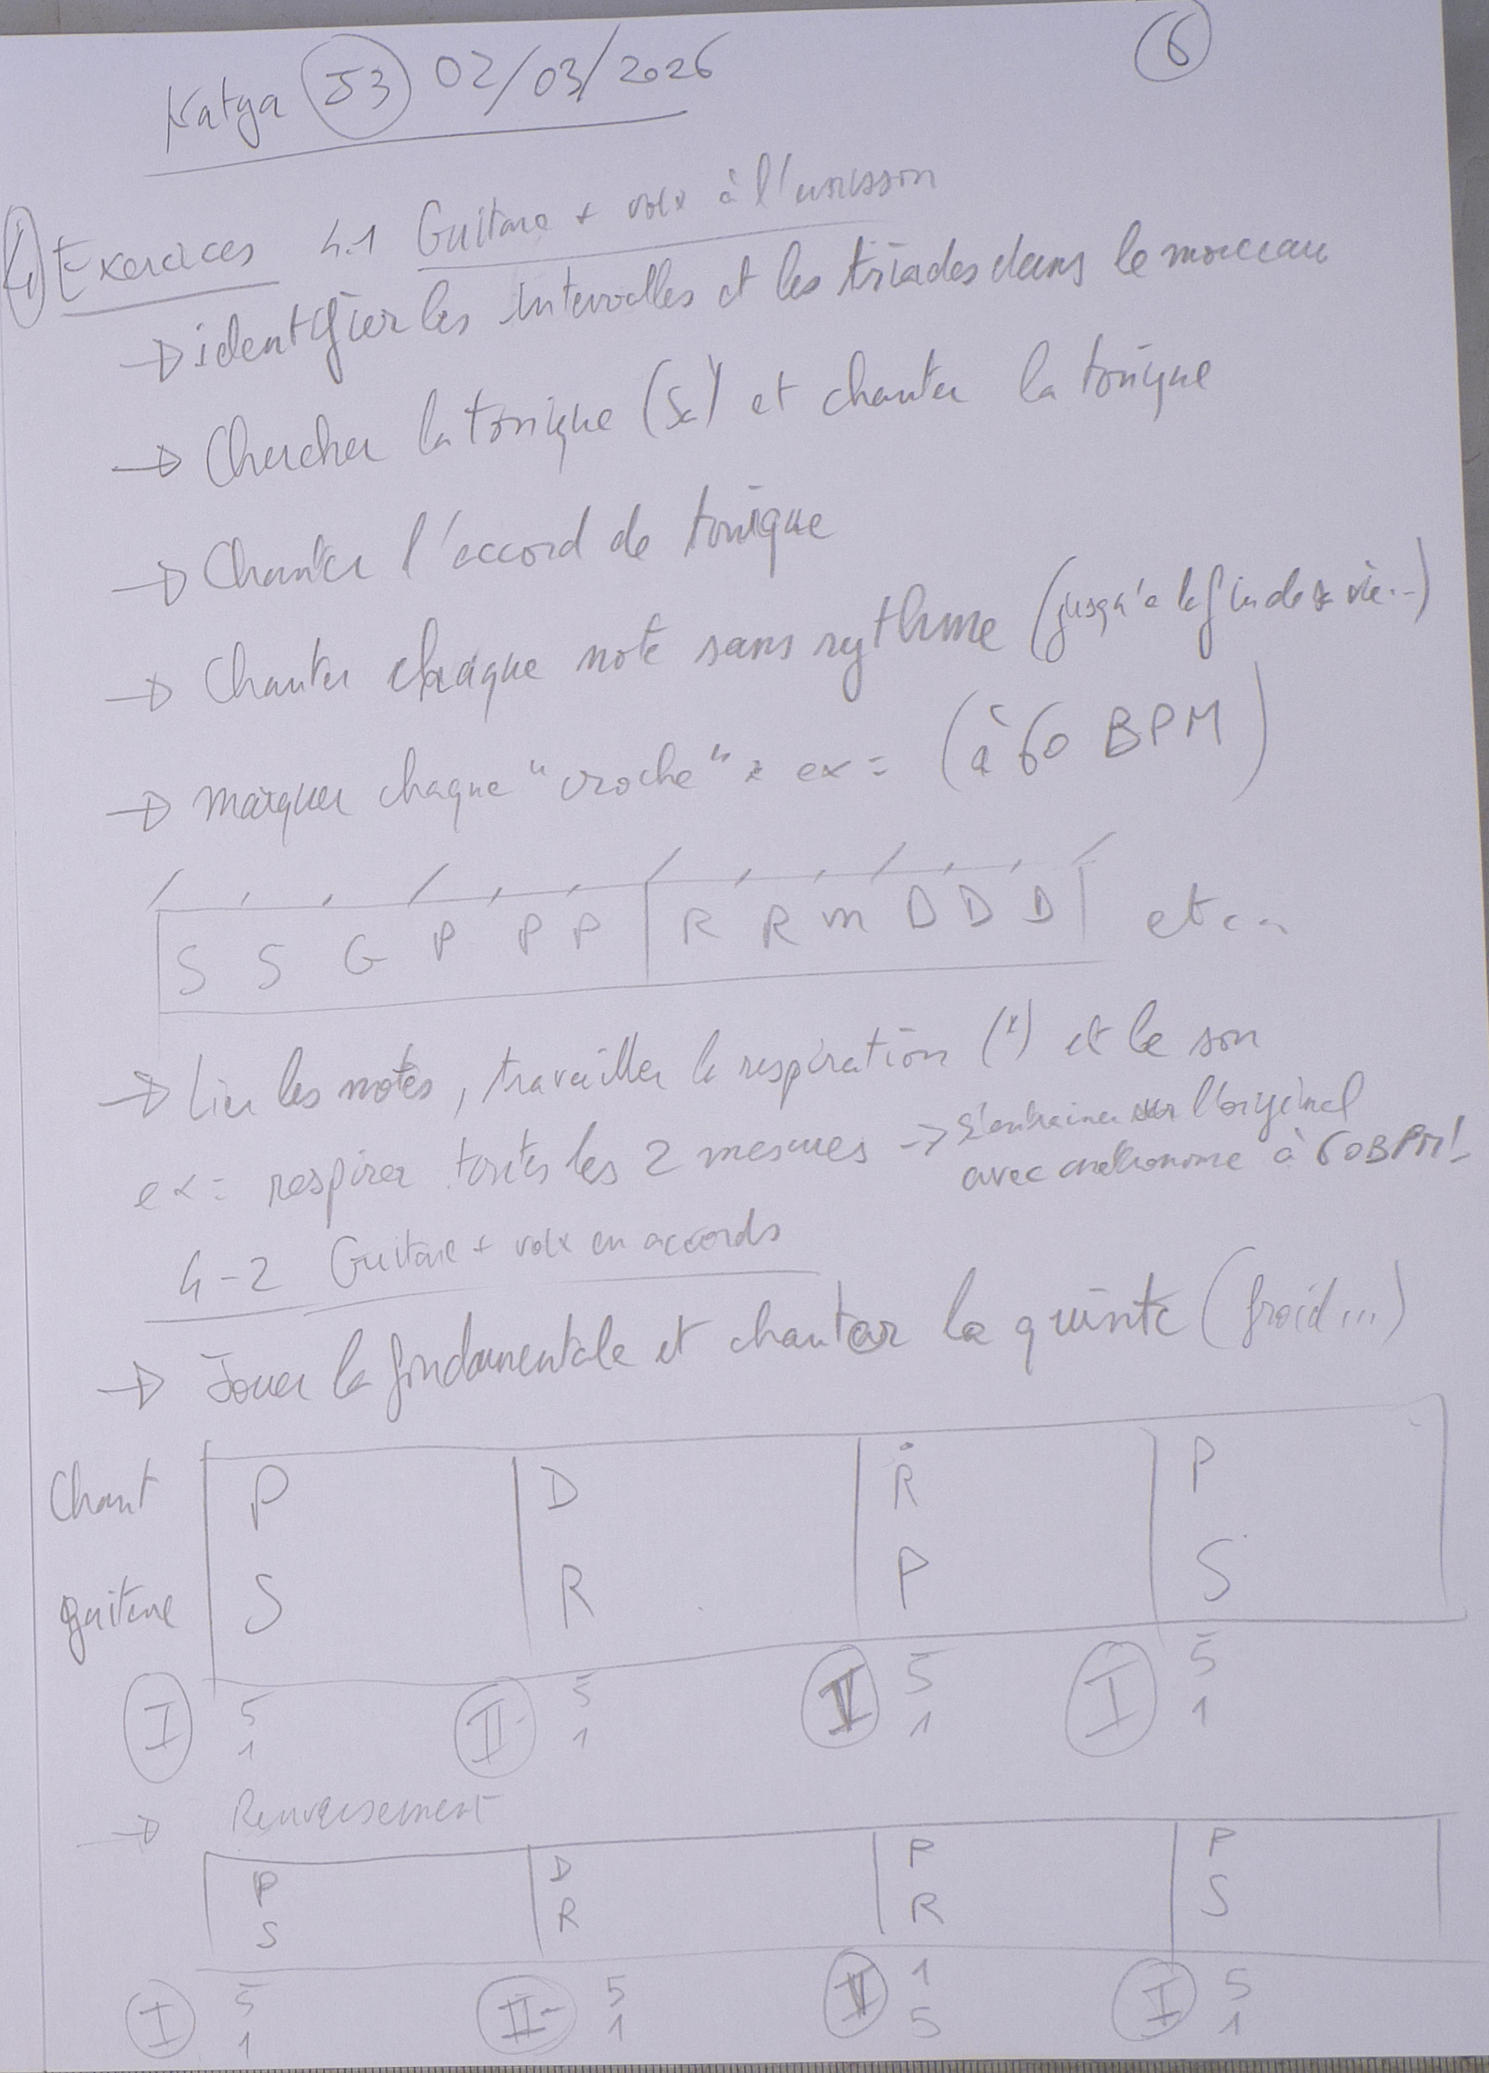 Natya J3 02/03/2026
6
4) Exercices 4.1 Guitare + voix à l'unisson
→ identifier les intervalles et les triades dans le morceau
→ Chercher la tonique (Sa) et chanter la tonique
→ Chanter l'accord de tonique
→ Chanter chaque note sans rythme (jusqu'à la fin de la vie...)
→ Marquer chaque "croche" : ex = (à 60 BPM)
S S G P P P | R R m D D D | etc..
→ Lier les notes, travailler la respiration (') et le son
ex = respirer toutes les 2 mesures → s'entrainer sur l'original
avec métronome à 60BPM!
4-2 Guitare + voix en accords
→ Jouer la fondamentale et chanter la quinte (froid...)
Chant P | D | Ṙ | P
guitare S | R | P | S
I 5 II- 5 V 5 I 5
1 1 1 1
→ Renversement
P | D | P | P
S | R | R | S
I 5 II- 5 V 1 I 5
1 1 5 1